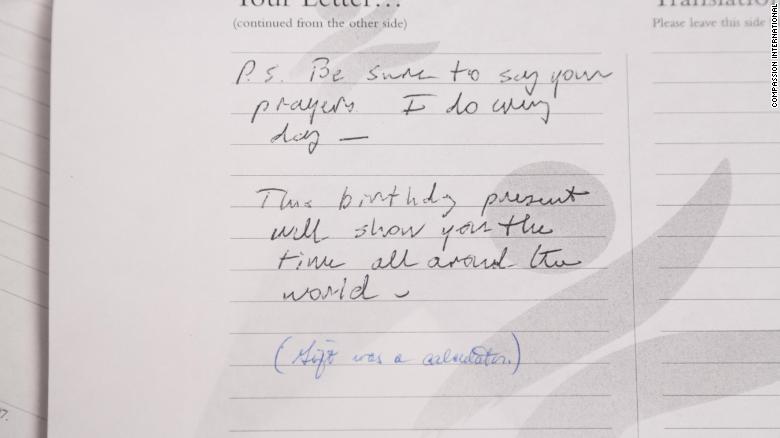 Your Letter...
(continued from the other side)
P.S. Be sure to say your
prayers. I do every
day —
This birthday present
will show you the
time all around the
world
(Gift was a calculator.)
Translatio
Please leave this side
COMPASSION INTERNATIONAL
7.